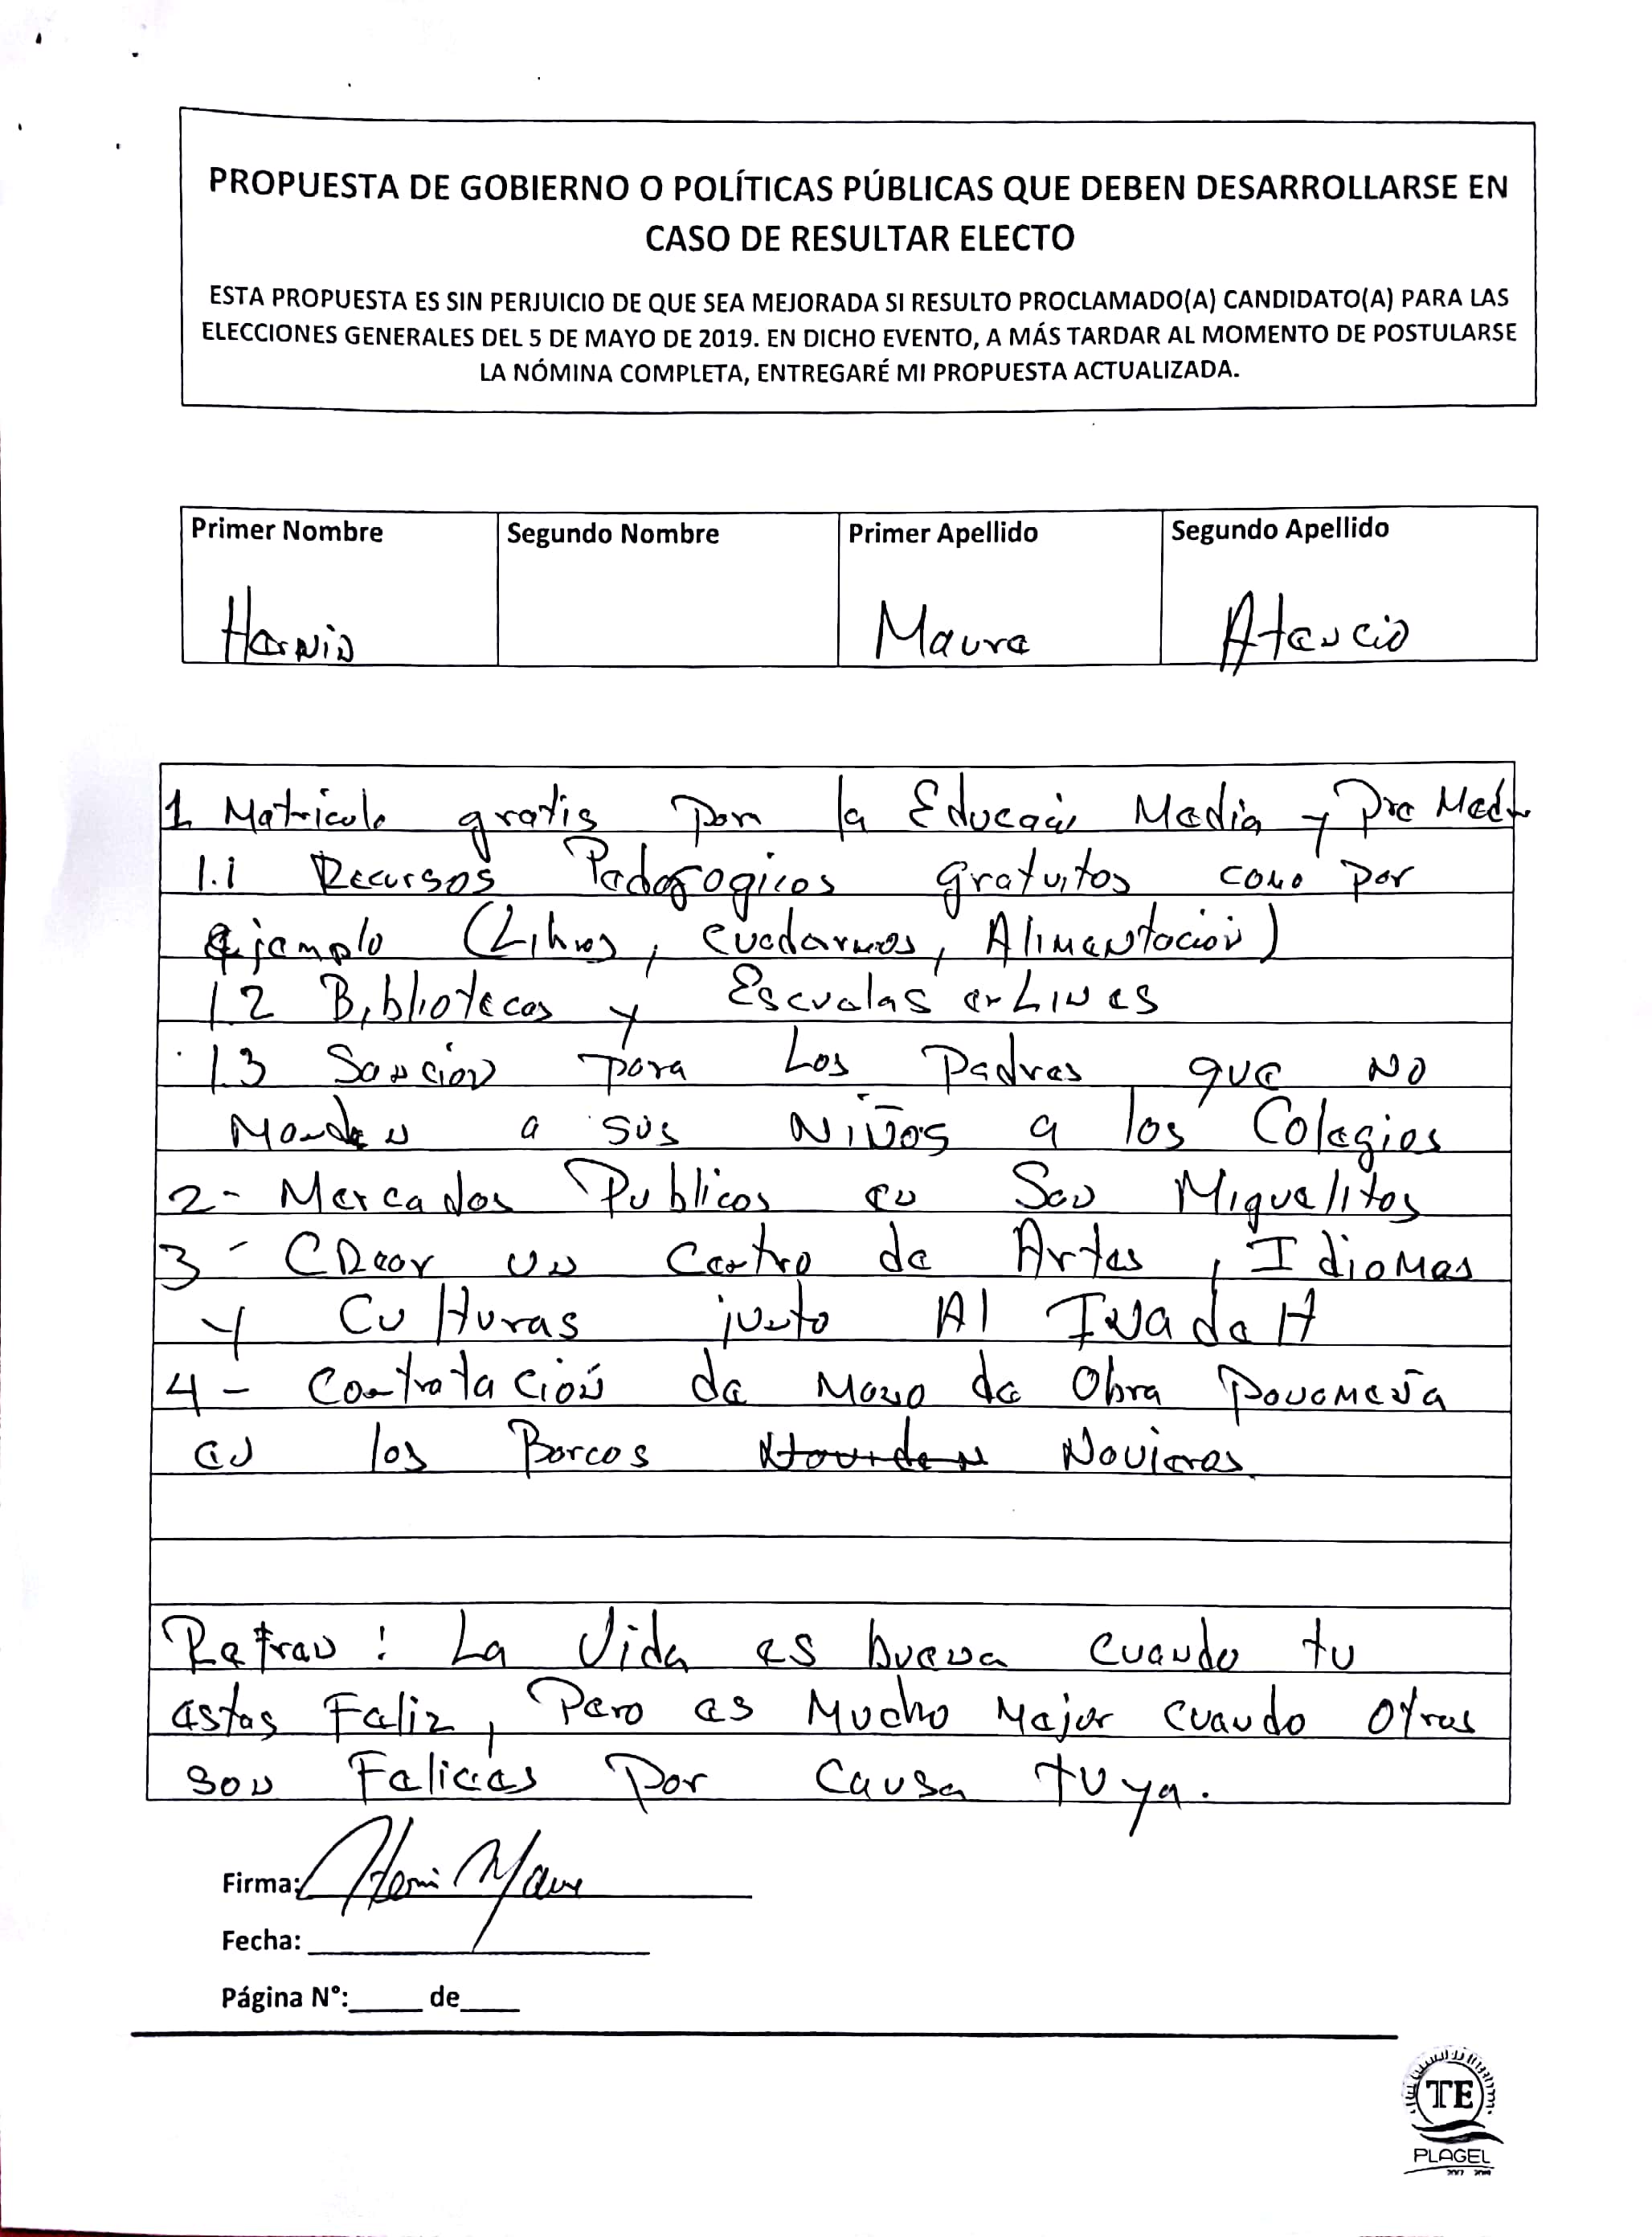 PROPUESTA DE GOBIERNO O POLÍTICAS PÚBLICAS QUE DEBEN DESARROLLARSE EN
CASO DE RESULTAR ELECTO
ESTA PROPUESTA ES SIN PERJUICIO DE QUE SEA MEJORADA SI RESULTO PROCLAMADO(A) CANDIDATO(A) PARA LAS
ELECCIONES GENERALES DEL 5 DE MAYO DE 2019. EN DICHO EVENTO, A MÁS TARDAR AL MOMENTO DE POSTULARSE
LA NÓMINA COMPLETA, ENTREGARÉ MI PROPUESTA ACTUALIZADA.
Primer Nombre Segundo Nombre Primer Apellido Segundo Apellido
Maure Atencio
1 Matricula gratis por la Educación Media y Pre Med
1.1 Recursos Pedagogicos gratuitos como por
ejemplo (Libros, cuadernos, Alimentación)
1.2 Bibliotecas y Escuelas en Lines
1.3 Sanción para Los Padres que no
Manden a sus Niños a los Colegios
2- Mercados Publicos en San Miguelitos
3- Crear un Centro de Artes, Idiomas
y Culturas junto Al InadeH
4- Contratación de Mano de Obra Panameña
en los Barcos Navieros.
Refran: La Vida es buena cuando tu
estas Feliz, Pero es Mucho Mejor cuando Otros
son Felices Por Causa tuya.
Firma:
Fecha:
Página N°:_____ de____
TE
PLAGEL
2017 2019